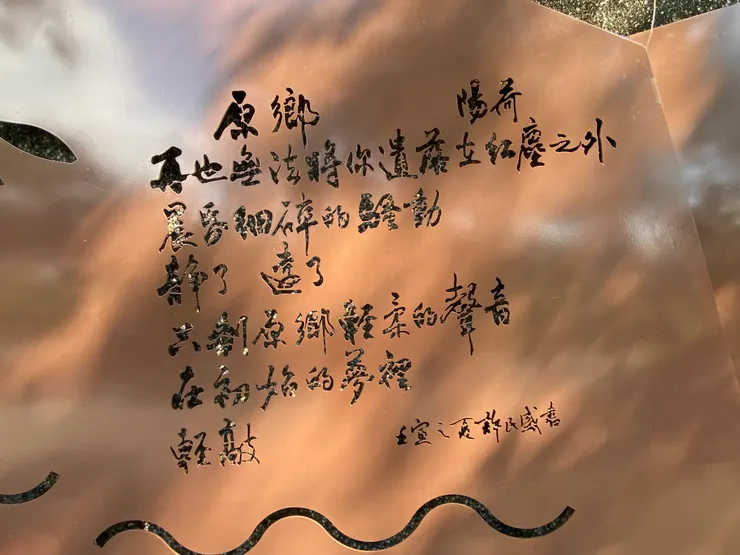 原鄉 陽荷
再也無法將你遺落在紅塵之外
晨昏細碎的騷動
靜了 遠了
只剩原鄉輕柔的聲音
在初始的夢裡
輕敲
壬寅之夏許民盛書